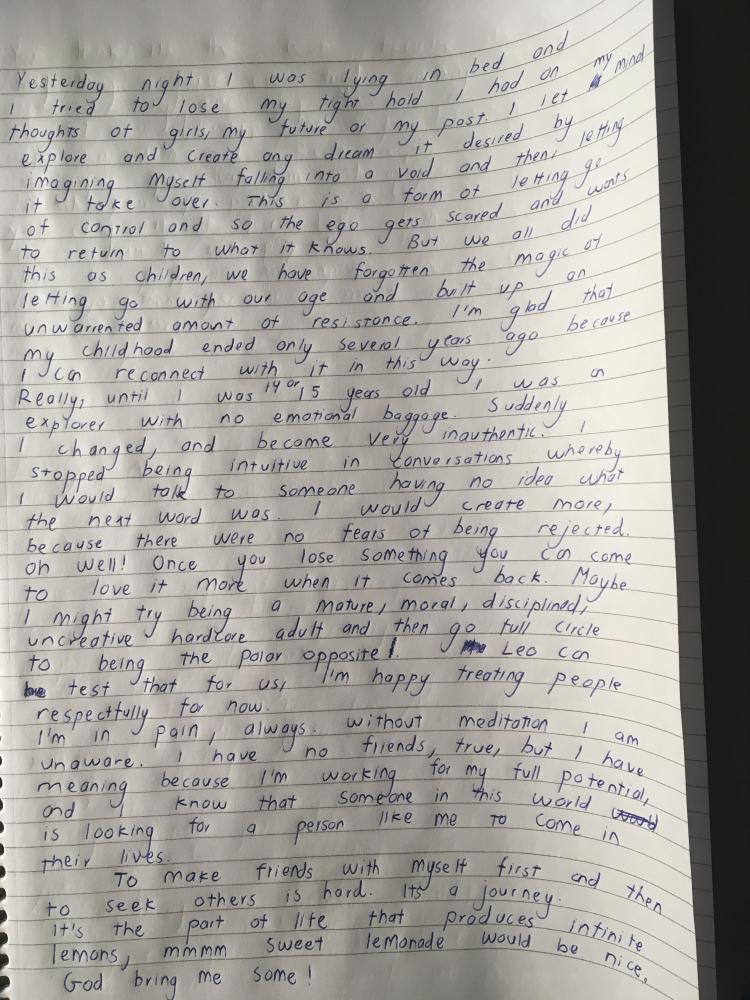 Yesterday night I was lying in bed and
I tried to lose my tight hold I had on my mind
thoughts of girls, my future or my past. I let
explore and create any dream it desired by
imagining myself falling into a void and then, letting
it take over. This is a form of letting go
of control and so the ego gets scared and wants
to return to what it knows. But we all did
this as children, we have forgotten the magic of
letting go with our age and built up an
unwarrented amount of resistance. I'm glad that
my childhood ended only several years ago because
I can reconnect with it in this way.
Really, until I was 14 or 15 years old I was an
explorer with no emotional baggage. Suddenly
I changed, and became very inauthentic. I
stopped being intuitive in conversations whereby
I would talk to someone having no idea what
the next word was. I would create more,
because there were no fears of being rejected.
Oh well! Once you lose something you can come
to love it more when it comes back. Maybe
I might try being a mature, moral, disciplined,
uncreative hardcore adult and then go full circle
to being the polar opposite! Leo can
test that for us, I'm happy treating people
respectfully for now.
I'm in pain, always. Without meditation I am
unaware. I have no friends, true, but I have
meaning because I'm working for my full potential,
and I know that someone in this world
is looking for a person like me to come in
their lives.
To make friends with myself first and then
to seek others is hard. Its a journey.
It's the part of life that produces infinite
lemons, mmmm sweet lemonade would be nice,
God bring me some!